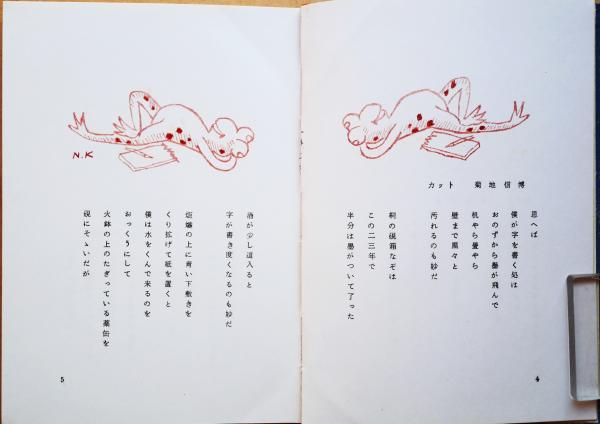 カット　菊地信博
思へば
僕が字を書く処は
おのずから墨が飛んで
机やら畳やら
壁まで黒々と
汚れるのも妙だ
桐の硯箱なぞは
この二三年で
半分は墨がついて了った
4
N.K
酒が少し這入ると
字が書き度くなるのも妙だ
炬燵の上に青い下敷きを
くり拡げて紙を置くと
僕は水をくんで来るのを
おっくうにして
火鉢の上のたぎっている薬缶を
硯にそゝいだが
5